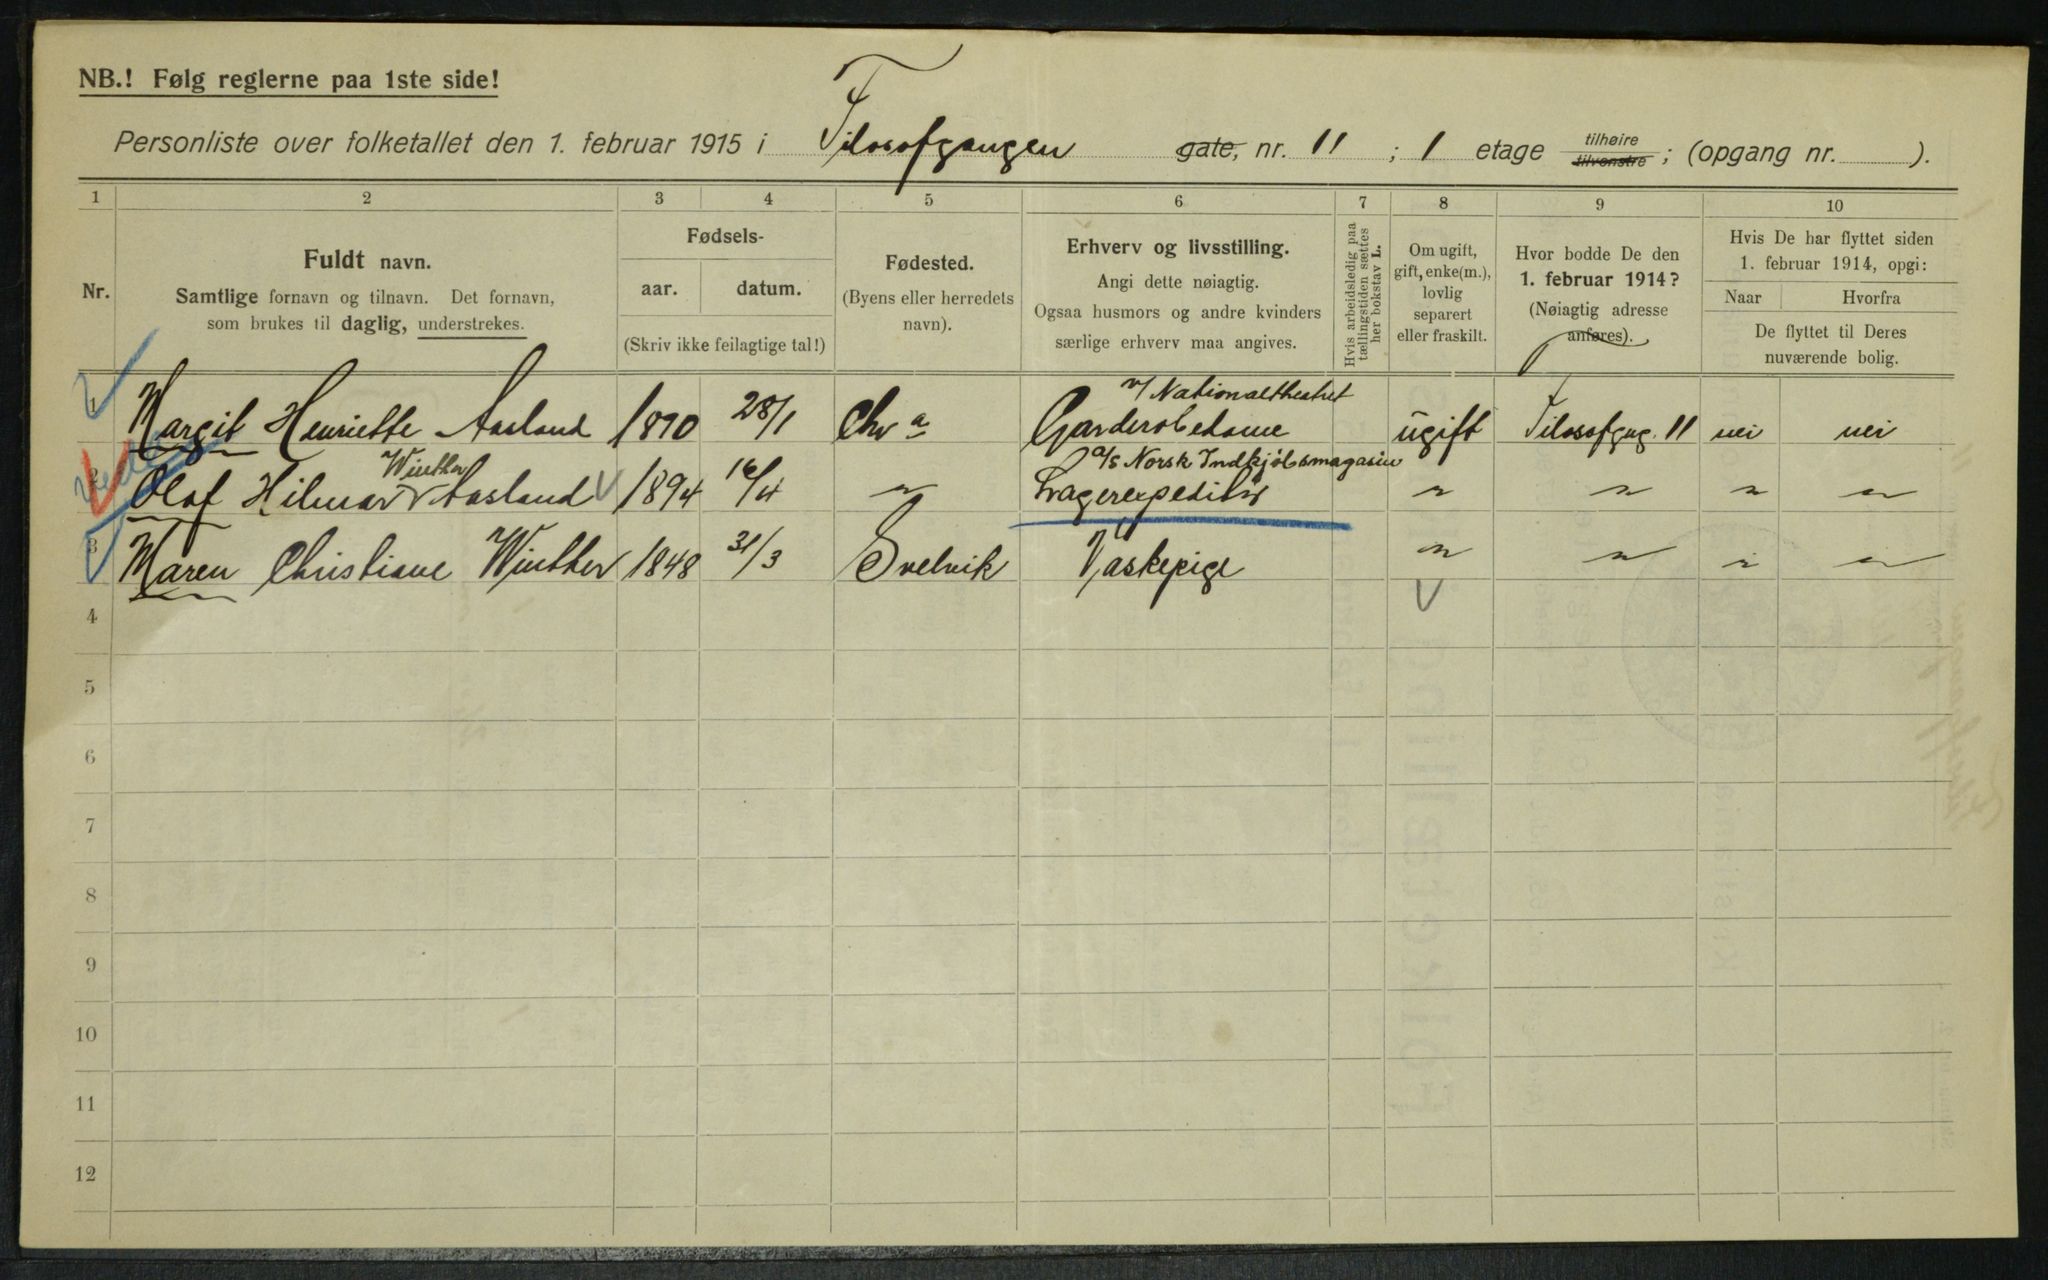 NB.! Følg reglerne paa 1ste side!
Personliste over folketallet den 1. februar 1915 i Filosofgangen gate, nr. 11 ; 1 etage tilhøire tilvenstre ; (opgang nr. ).
1 2 3 4 5 6 7 8 9 10
Nr.
Fuldt navn.
Samtlige fornavn og tilnavn. Det fornavn,
som brukes til daglig, understrekes.
Fødsels-
aar. datum.
(Skriv ikke feilagtige tal!)
Fødested.
(Byens eller herredets
navn).
Erhverv og livsstilling.
Angi dette nøiagtig.
Ogsaa husmors og andre kvinders
særlige erhverv maa angives.
Hvis arbeidsledig paa
tællingstiden sættes
her bokstav L.
Om ugift,
gift, enke(m.),
lovlig
separert
eller fraskilt.
Hvor bodde De den
1. februar 1914?
(Nøiagtig adresse
anføres).
Hvis De har flyttet siden
1. februar 1914, opgi:
Naar Hvorfra
De flyttet til Deres
nuværende bolig.
v/ Nationaltheatret
1 Margit Henriette Aasland 1890 28/1 Chr a Garderobedame ugift Filosofgng. 11 nei nei
Winther a/s Norsk Indkjøbsmagasin
2 Olaf Hilmar Aasland 1894 16/4 " Lagerexpeditør " " " "
3 Maren Christiane Winther 1848 31/3 Svelvik Vaskepige " " " "
4
5
6
7
8
9
10
11
12